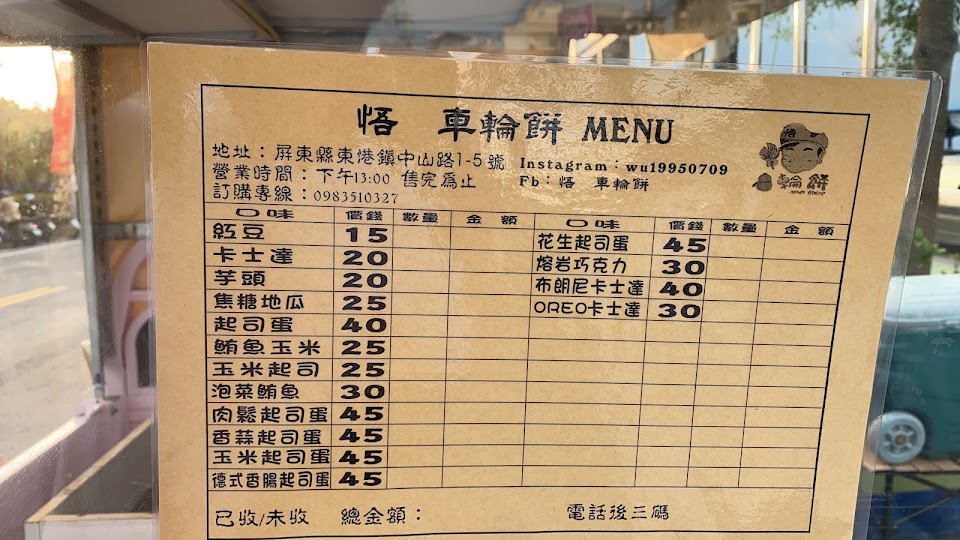 悟 車輪餅 MENU
地址：屏東縣東港鎮中山路1-5號
營業時間：下午13:00 售完為止
訂購專線：0983510327
Instagram：wu19950709
Fb：悟 車輪餅
悟
輪餅
口味 價錢 數量 金額 口味 價錢 數量 金額
紅豆 15 花生起司蛋 45
卡士達 20 熔岩巧克力 30
芋頭 20 布朗尼卡士達 40
焦糖地瓜 25 OREO卡士達 30
起司蛋 40
鮪魚玉米 25
玉米起司 25
泡菜鮪魚 30
肉鬆起司蛋 45
香蒜起司蛋 45
玉米起司蛋 45
德式香腸起司蛋 45
已收/未收 總金額： 電話後三碼